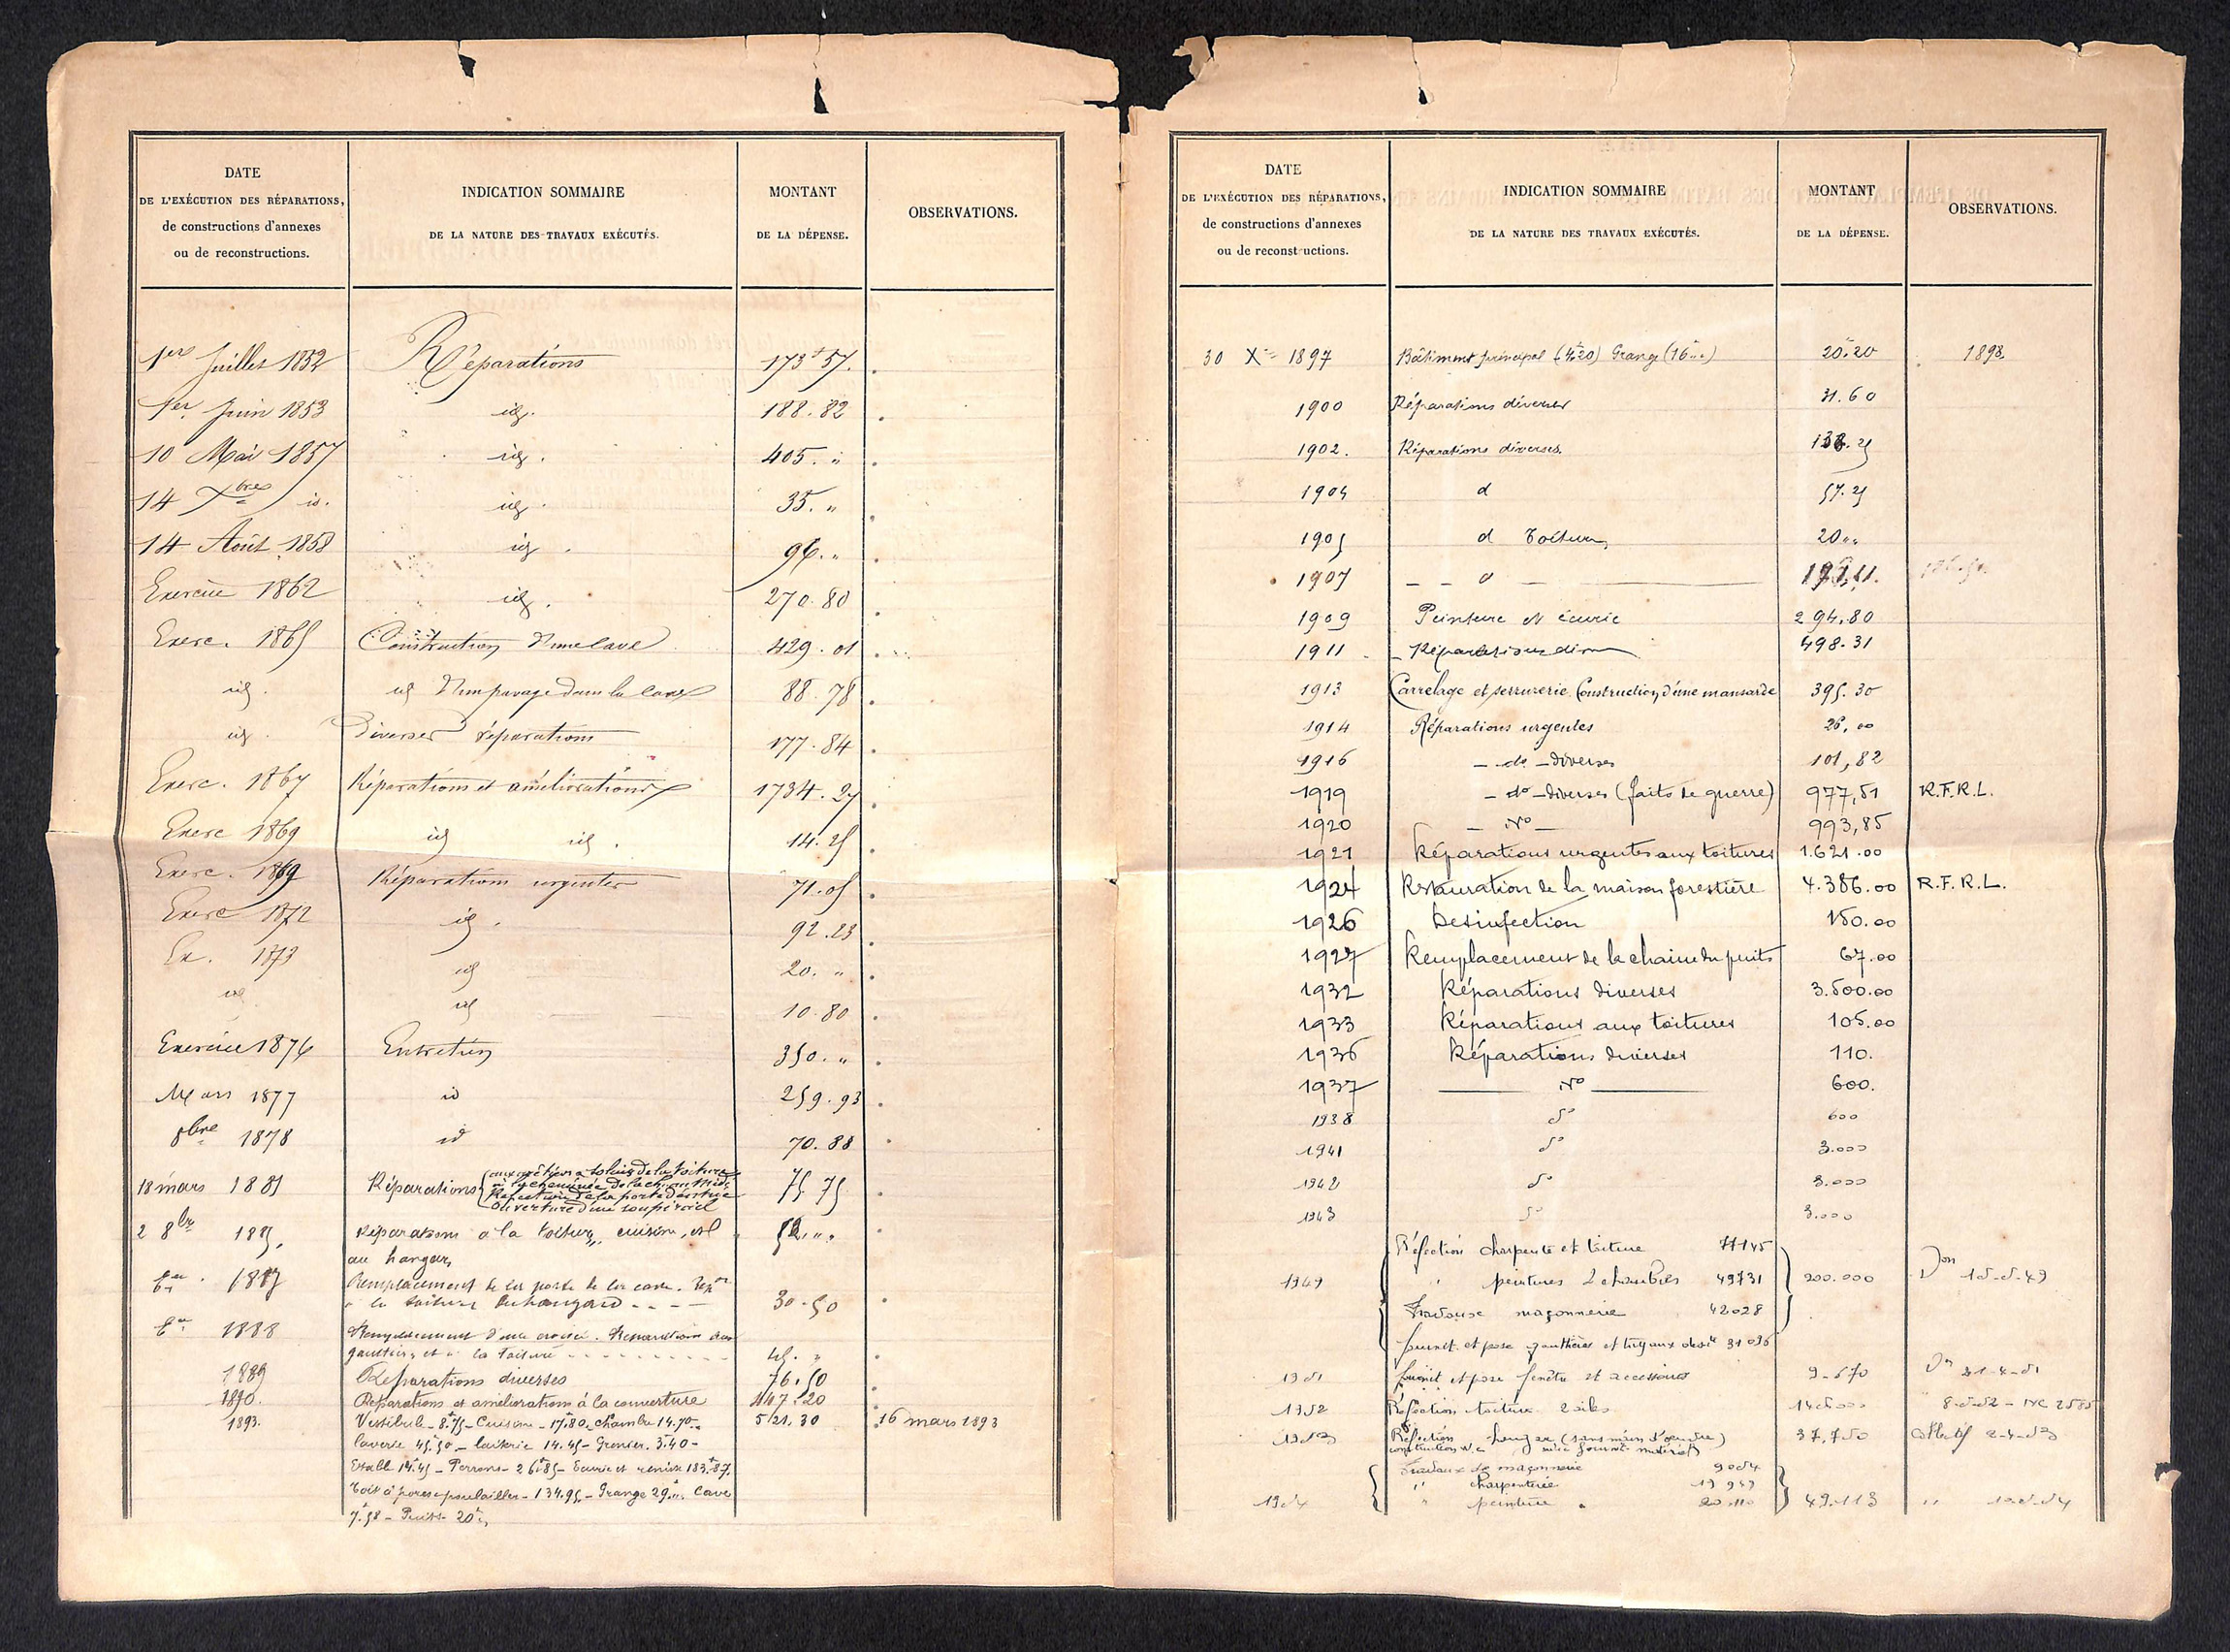 DATE
DE L'EXÉCUTION DES RÉPARATIONS,
de constructions d'annexes
ou de reconstructions.
INDICATION SOMMAIRE
DE LA NATURE DES TRAVAUX EXÉCUTÉS.
MONTANT
DE LA DÉPENSE.
OBSERVATIONS.
1er Juillet 1852 Réparations 173f57.
1er Juin 1853 id. 188.82
10 Mai 1857 id. 405. "
14 Xbre id. id. 35. "
14 Août 1858 id. 96. "
Exercice 1862 id. 270.80
Exerc. 1865 Construction d'une cave 429.01
id. id d'un pavage dans la cave 88.78
id. Diverses réparations 177.84
Exerc. 1867 Réparations et améliorations 1734.27
Exerc 1869 id id. 14.25
Exerc. 1869 Réparations urgentes 71.05
Exerc 1872 id. 92.23
Ex. 1873 id 20. "
id id 10.80
Exercice 1876 Entretien 350. "
Mars 1877 id 259.93
8bre 1878 id 70.88
18 mars 1881 Réparations de la toiture 75.75
à la cheminée de la
Réfection de la porte d'entrée
Ouverture d'un soupirail
2 8bre Réparations à la toiture, cuisine, et
au hangar
1887 Remplacement de la porte de la cave. Repon
à la toiture du hangard - - - 30.50
1888 Remplacement d'une croisée. Réparations aux
gouttières et à la toiture 45. "
1889 Réparations diverses 76.50
1890. Réparations et améliorations à la couverture 147.20
1893. Vestibule - 8f75 - Cuisine - 17f80 - chambre 14.70 - 521.30 16 mars 1893
Laverie 45.50 - laiterie 14.45 - Grenier. 3f40 -
Etable 14f45 - Perrons - 26f85 - Ecurie et remise 183f87.
Toit à porcs poulailler - 134.95 - Grange 29f" Cave
7.58 - Puits 20f"
DATE
DE L'EXÉCUTION DES RÉPARATIONS,
de constructions d'annexes
ou de reconstructions.
INDICATION SOMMAIRE
DE LA NATURE DES TRAVAUX EXÉCUTÉS.
MONTANT
DE LA DÉPENSE.
OBSERVATIONS.
30 Xbre 1897 Bâtiment principal (4f20) Grange (16f") 20f20 1898.
1900 Réparations diverses 31.60
1902. Réparations diverses. 138.25
1904 d 57.25
1905 d Toiture 20 "
1907 - - d -
1909 Peinture et écurie 294.80
1911 - Réparations diverses 498.31
1913 Carrelage et serrurerie. Construction d'une mansarde 395.30
1914 Réparations urgentes 26,00
1916 - do - diverses 101,82
1919 - do - diverses (faits de guerre) 977,51 R.F.R.L.
1920 - do - 993,85
1921 Réparations urgentes aux toitures 1.621.00
1924 Restauration de la maison forestière 4.386.00 R.F.R.L.
1926 Desinfection 150.00
1927 Remplacement de la chaine du puits 67.00
1932 Réparations diverses 3.500.00
1933 Réparations aux toitures 105.00
1936 Réparations diverses 110.
1937 do 600.
1938 do 600
1941 do 3.000
1942 do 3.000
1943 do 3.000
Réfection charpente et toiture 77145
1949 " peintures 2 chambres 49731 200.000 Don 15-5-49
Travaux maçonnerie 42028
fournit. et pose gouttières et tuyaux desc 31096
1951 fournit et pose fenêtre et accessoires 9.570 Don 21-4-51
1952 Réfection toiture 145000 8-5-52 - 2585
1953 Réfection hangar (sans main d'œuvre) 37.750 2-4-53
construction W.C. fournit. matériel
Travaux de maçonnerie 9054
" charpenterie 19949
1954 " peinture 20.110 49.113 " 10-5-54